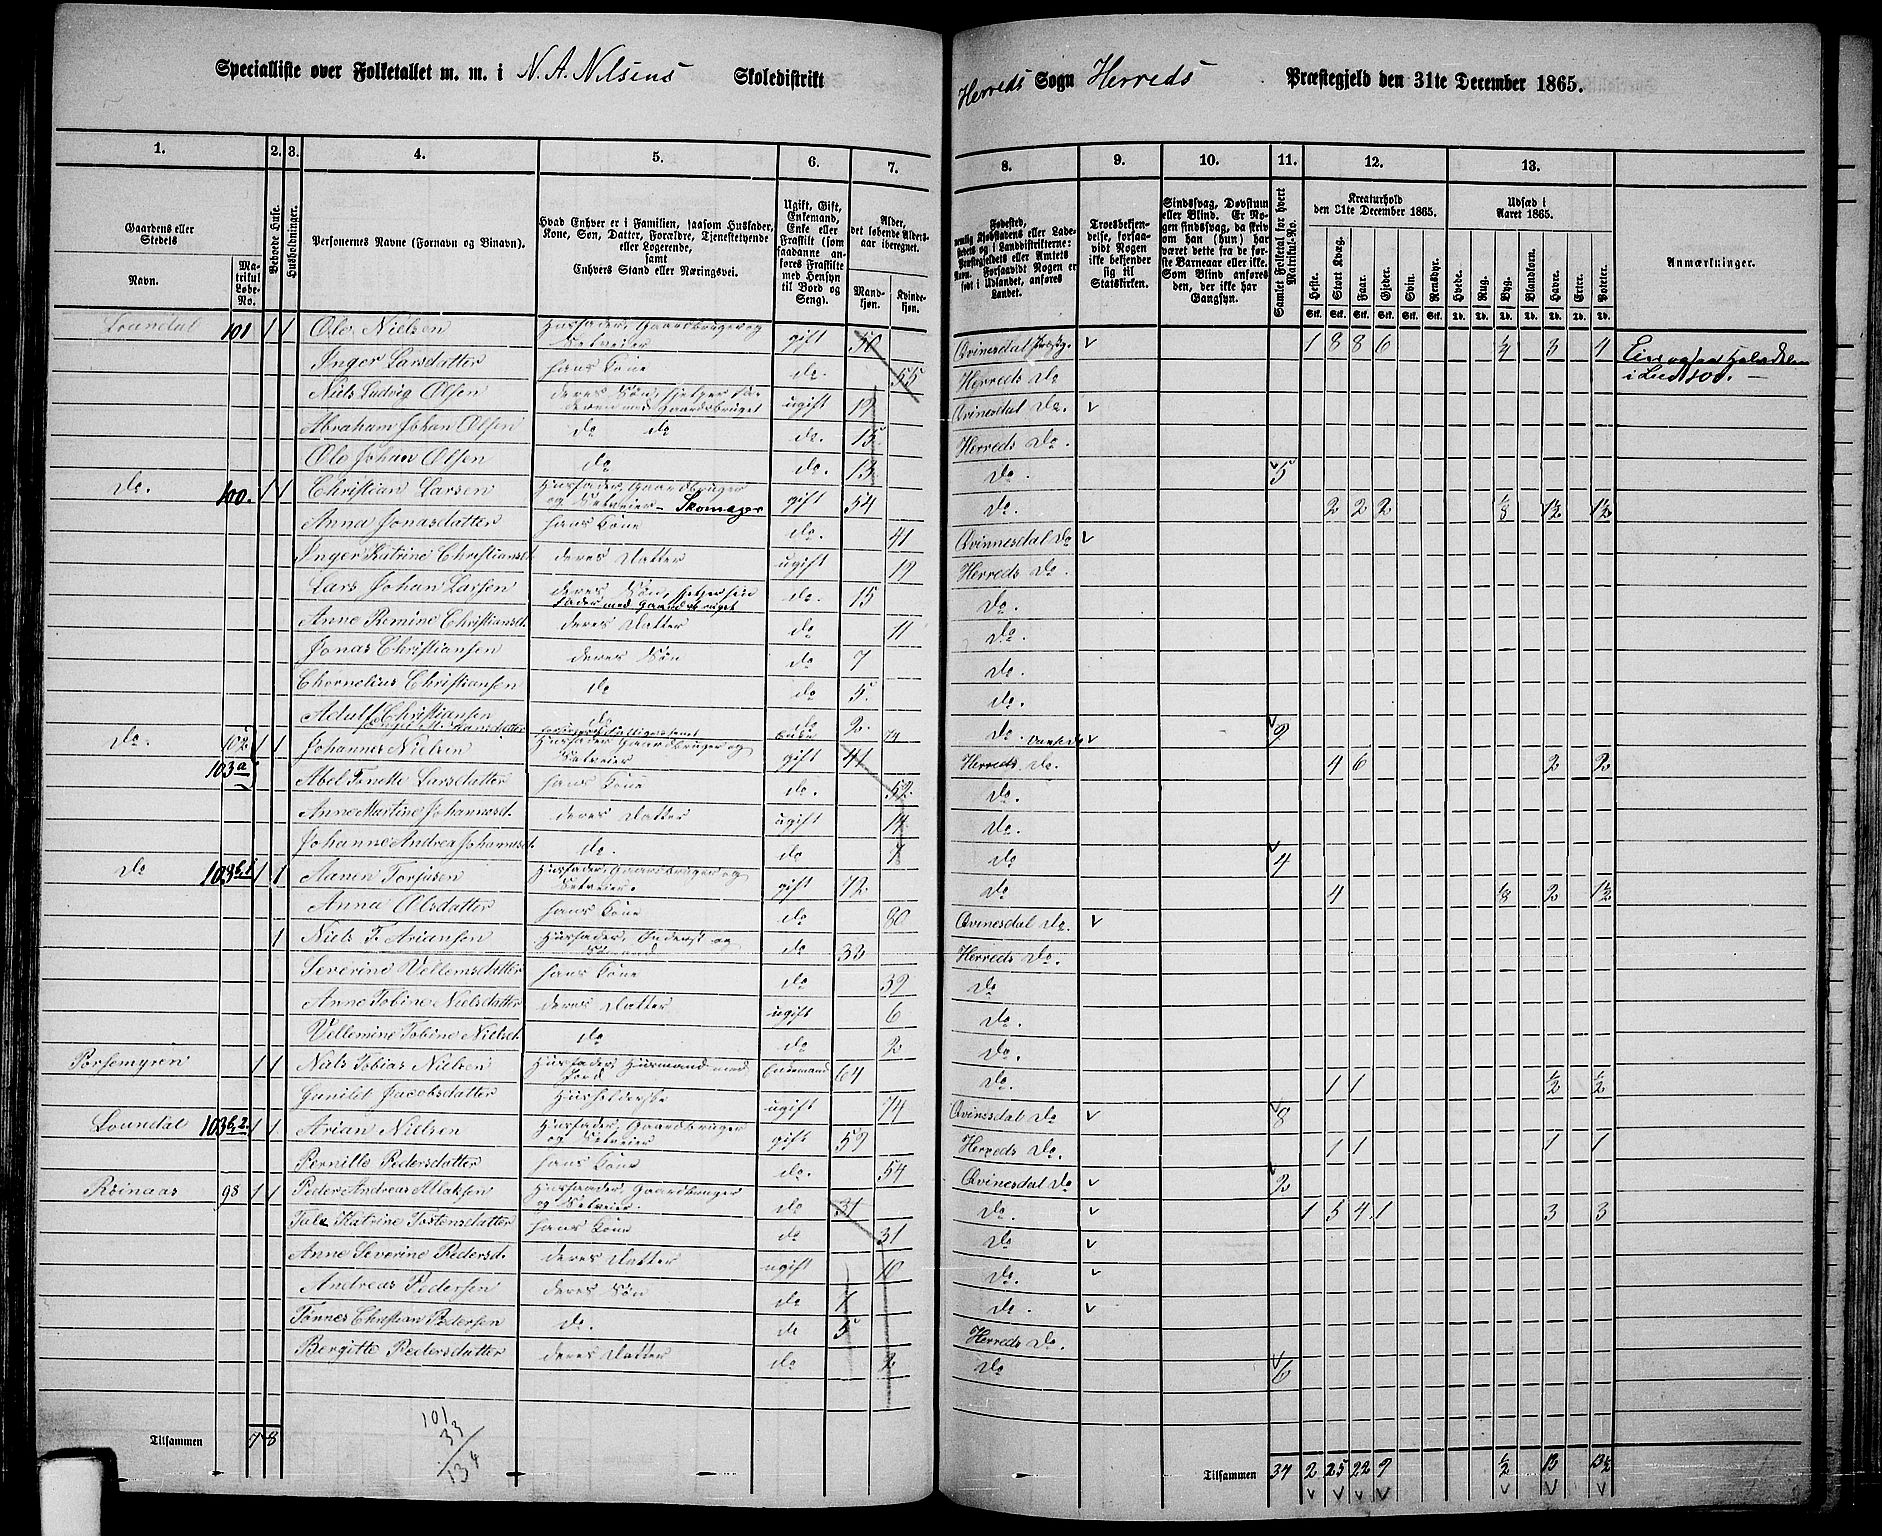 Specialliste over Folketallet m. m. i N. A. Nilsens Skoledistrikt Herreds Sogn Herreds Præstegjeld den 31te December 1865.
1. 2. 3. 4. 5. 6. 7. 8. 9. 10. 11. 12. 13.
Gaardens eller Stedets
Navn.
Matrikul Løbe-No.
Beboede Huse.
Husholdninger.
Personernes Navne (Fornavn og Binavn).
Hvad Enhver er i Familien, saasom Husfader, Kone, Søn, Datter, Forældre, Tjenestetyende eller Logerende, samt Enhvers Stand eller Næringsvei.
Ugift, Gift, Enkemand, Enke eller Fraskilt (som saadanne anføres Fraskilte med Hensyn til Bord og Seng).
Alder, det løbende Aldersaar iberegnet.
Mandkjøn.
Kvindekjøn.
Fødested, nemlig Kjøbstadens eller Ladestedets og i Landdistrikterne: Præstegjeldets eller Amtets Navn. Forsaavidt Nogen er født i Udlandet, anføres Landet.
Troesbekjendelse, forsaavidt Nogen ikke bekjender sig til Statskirken.
Sindssvag, Døvstum eller Blind. Er Nogen sindssvag, da skriv om han (hun) har været dette fra de første Barneaar eller ikke. Som Blind anføres den, der ikke har Gangsyn.
Samlet Folketal for hvert Matrikul-No.
Kreaturhold den 31te December 1865.
Heste. Stort Kvæg. Faar. Gjeder. Svin. Rensdyr.
Udsæd i Aaret 1865.
Hvede. Rug. Byg. Blandkorn. Havre. Erter. Poteter.
Anmærkninger.
Loundal 101 1 1 Ole Nielsen Husfader, Gaardbruger og Selveier gift 50 Qvinesdal Præstg. 1 8 8 6 1/4 3 4
Inger Larsdatter hans Kone do. 55 Herreds Do
Niels Ludvig Olsen deres Søn, hjelper Faderen med Gaardsbruget ugift 19 Qvinesdal Do.
Abraham Johan Olsen do do do. 15 Herreds Do.
Ole Johan Olsen do do. 13 Do. 5
Do. 100. 1 1 Christian Larsen Husfader, Gaardbruger og Selveier - Skomager gift 54 Do. 2 2 2 1/8 1½ 1½
Anna Jonasdatter hans Kone do. 41 Qvinnesdal Do
Inger Katrine Christiansdt deres Datter ugift 19 Herreds Do.
Lars Johan Larsen deres Søn, hjelper sin Fader med Gaardsbruget do. 15 Do.
Anne Remine Christiansdt. deres Datter do 11 Do.
Jonas Christiansen deres Søn do 7 Do.
Chornelius Christiansen do do 5. Do.
Adulf Christiansen do do 2. Do. 9
Do. 102 1 1 Johannes Nielsen Husfader Gaardbruger og Selveier gift 41 Herreds Do. 4 6 2 2
103a Abel Tonette Larsdatter hans Kone do. 52 Do.
Anne Martine Johannesdt. deres Datter ugift 14 Do.
Johanne Andrea Johannesdt do. do 7 Do 4
Do 103b,1 1 1 Aanen Torjusen Husfader, Gaardbruger og Selveier. gift 72. Do 4 1/8 2 1½
Anna Olsdatter hans Kone do 80 Qvinesdal Do.
1 Niels T. Ariansen Husfader, Inderst og do 33 Herreds Do.
Severine Vellemsdatter hans Kone do 39 Do
Anne Tobine Nielsdatter deres Datter ugift 6 Do.
Vellemine Tobine Nielsdt. do do 2 Do.
Porsemyren 1 1 Niels Tobias Nielsen Husfader, Husmand med Jord Enkemand 64 Do. 1 1 1/2 1/2
Gunild Jacobsdatter Husholderske ugift 74 Qvinesdal Do 8
Loundal 103b,2 1 1 Arian Nielsen Husfader, Gaardbruger og Selveier gift 59 Herreds Do. 1 1 1 1
Pernille Pedersdatter hans Kone do. 54 Qvinesdal Do 2
Røinaas 98 1 1 Peder Andreas Aslaksen Husfader, Gaardbruger og Selveier. do 31 Do. 1 5 4 1 3 3
Tale Katrine Tostensdatter hans Kone do 31 Do
Anne Severine Pedersd. deres Datter ugift 10 Do.
Andreas Pedersen deres Søn do 7 Do.
Tønnes Christian Pedersen do. do 5 Herreds Do.
Bergitte Pedersdatter deres Datter do 2 Do 6
101
33
134
Tilsammen 7 8
Tilsammen 34 2 25 22 9 1/2 13 13½